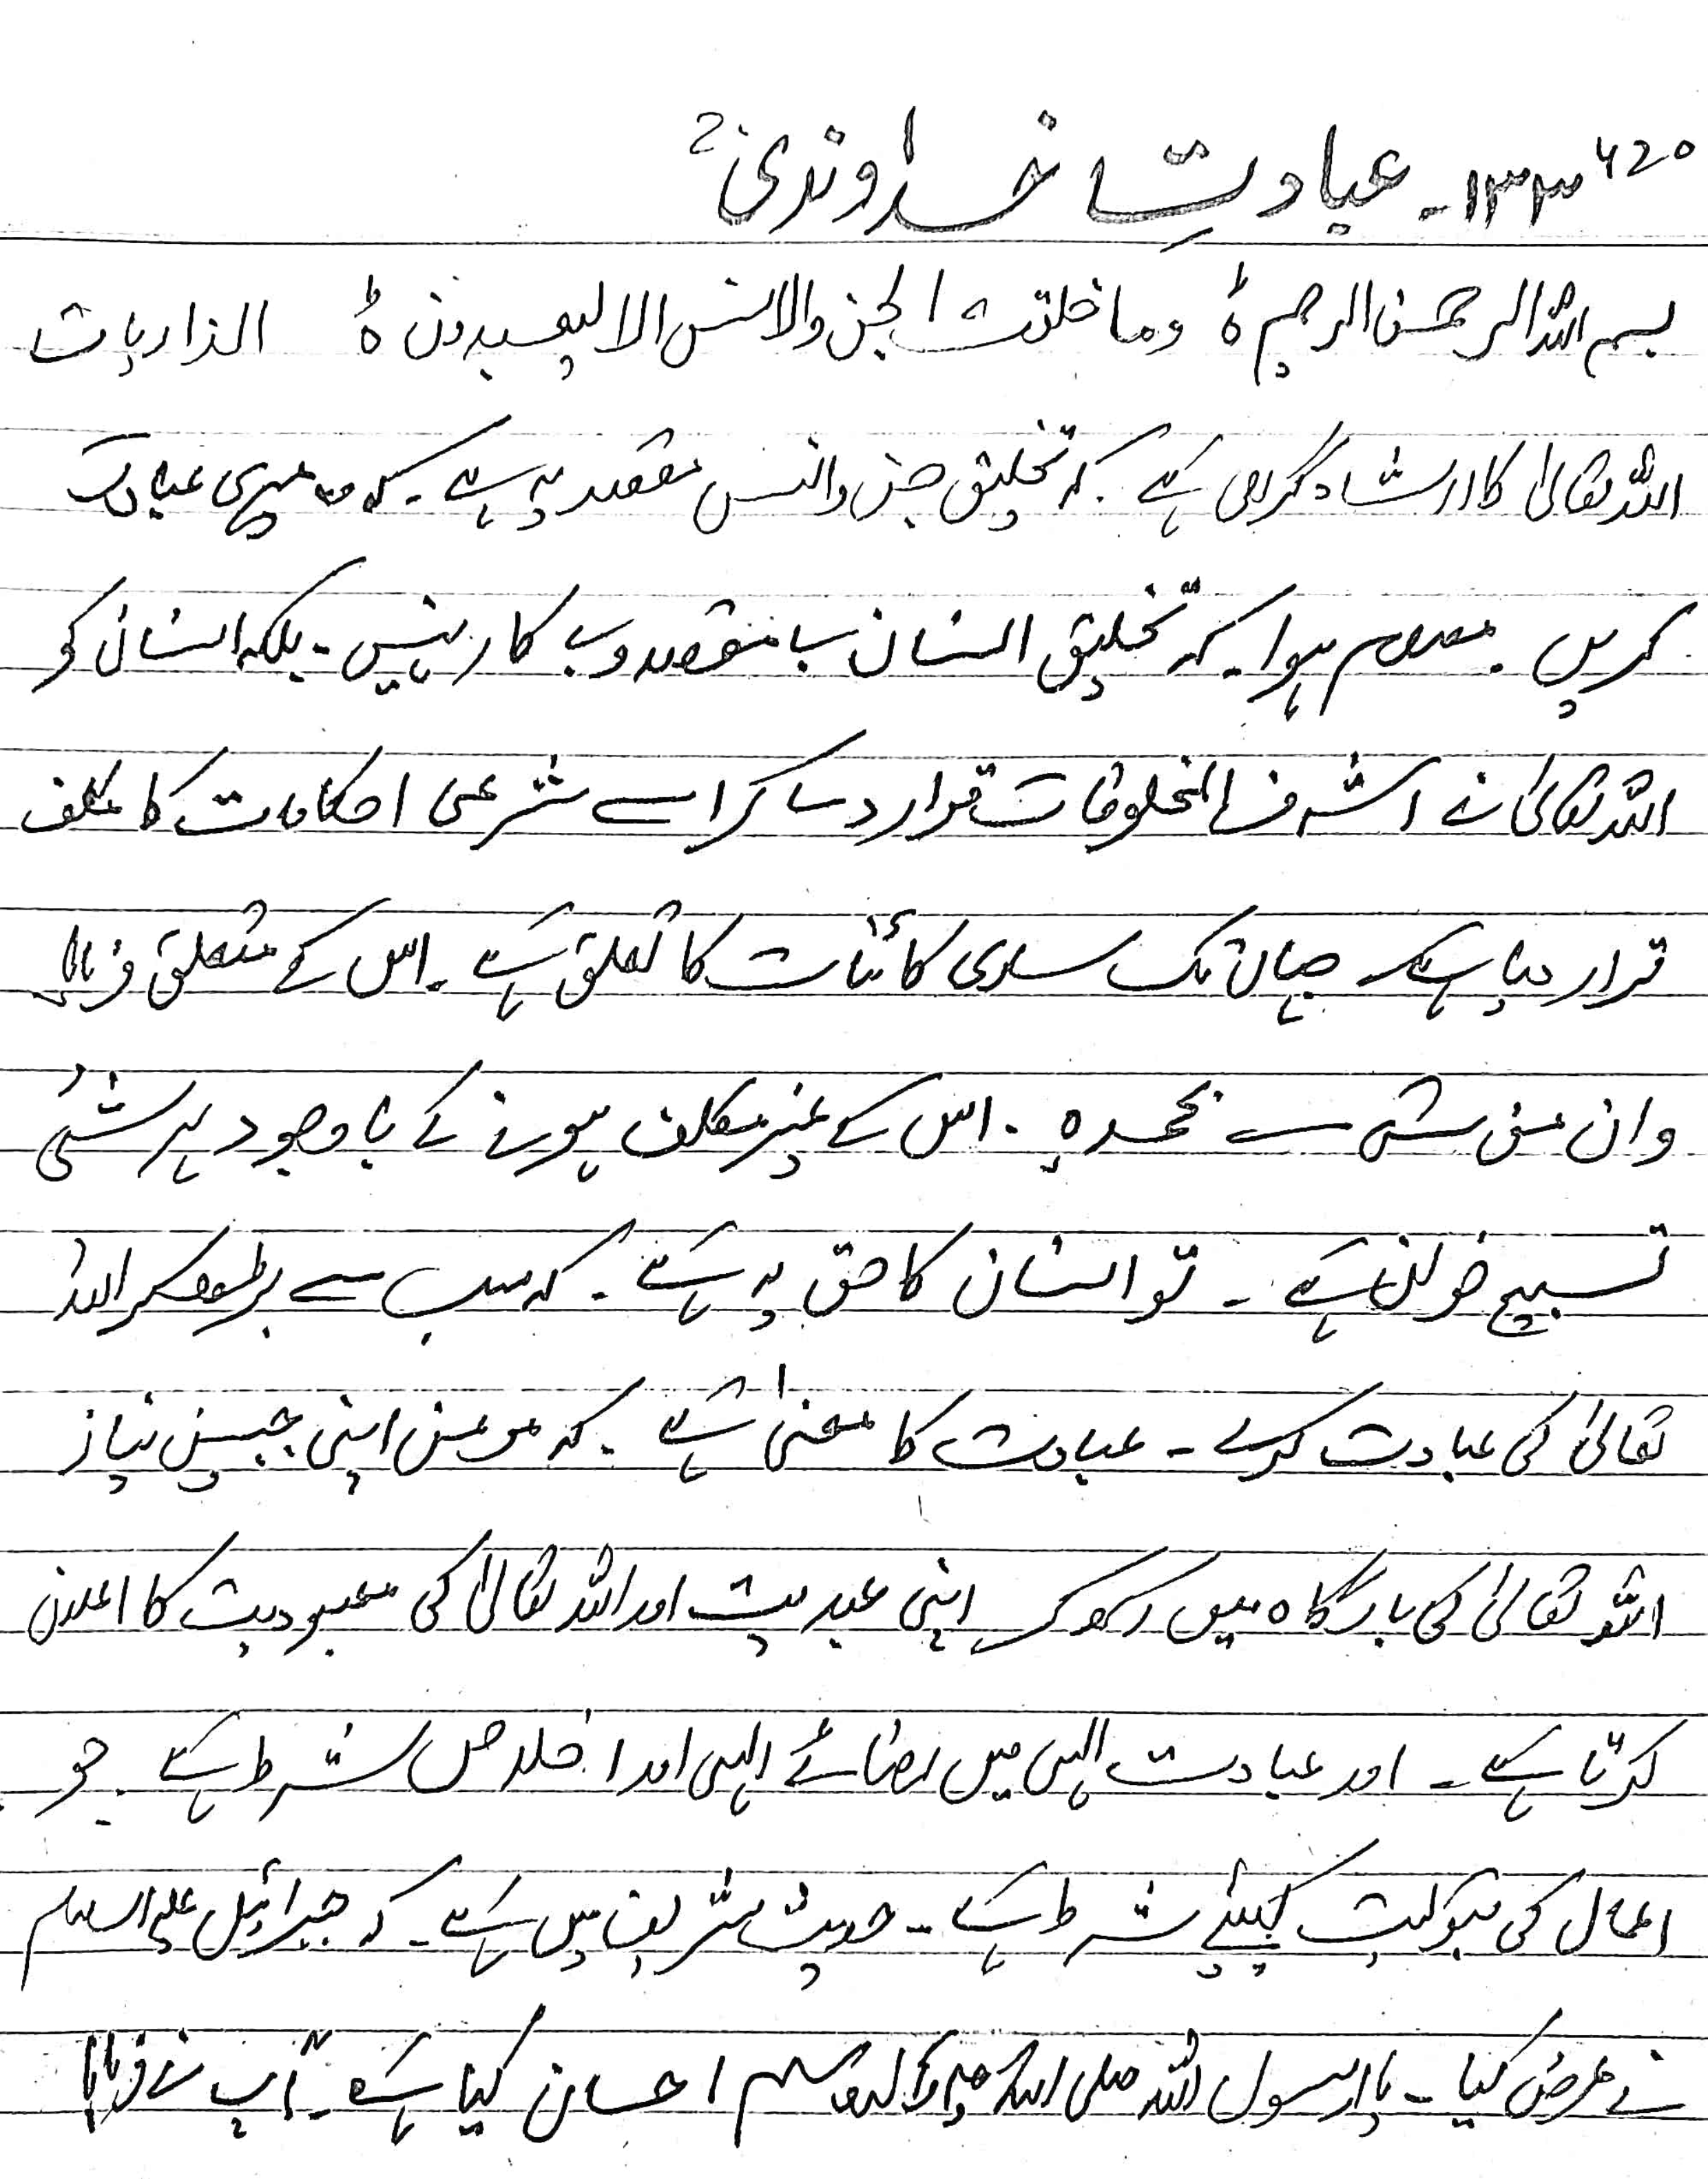 620
۱۳۳۔ عبادتِ خداوندی 2
بسم اللہ الرحمن الرحیم ہ وما خلقت الجن والانس الا لیعبدون ہ الذاریات
اللہ تعالیٰ کا ارشاد گرامی ہے۔ کہ تخلیق جن وانس مقصد یہ ہے۔ کہ وہ میری عبادت
کریں۔ معلوم ہوا۔ کہ تخلیق انسان بے مقصد و بے کار نہیں۔ بلکہ انسان کو
اللہ تعالیٰ نے اشرف المخلوقات قرار دے کر اسے شرعی احکامات کا مکلف
قرار دیا ہے۔ جہاں تک ساری کائنات کا تعلق ہے۔ اس کے متعلق فرمایا
وان من شی سے بحمدہ۔ اس کے غیر مکلف ہونے کے باوجود ہر شئی
تسبیح خواں ہے۔ تو انسان کا حق یہ ہے۔ کہ سب سے بڑھ کر اللہ
تعالیٰ کی عبادت کرے۔ عبادت کا معنیٰ ہے۔ کہ مومن اپنی جبین نیاز
اللہ تعالیٰ کی بارگاہ میں رکھ کر اپنی عبدیت اور اللہ تعالیٰ کی معبودیت کا اعلان
کرتا ہے۔ اور عبادت الہی میں رضائے الہی اور اخلاص شرط ہے۔ جو
اعمال کی قبولیت کیلئے شرط ہے۔ حدیث شریف میں ہے۔ کہ جبرائیل علیہ السلام
نے عرض کیا۔ یا رسول اللہ صلی اللہ علیہ وآلہ وسلم احسان کیا ہے۔ آپ نے فرمایا